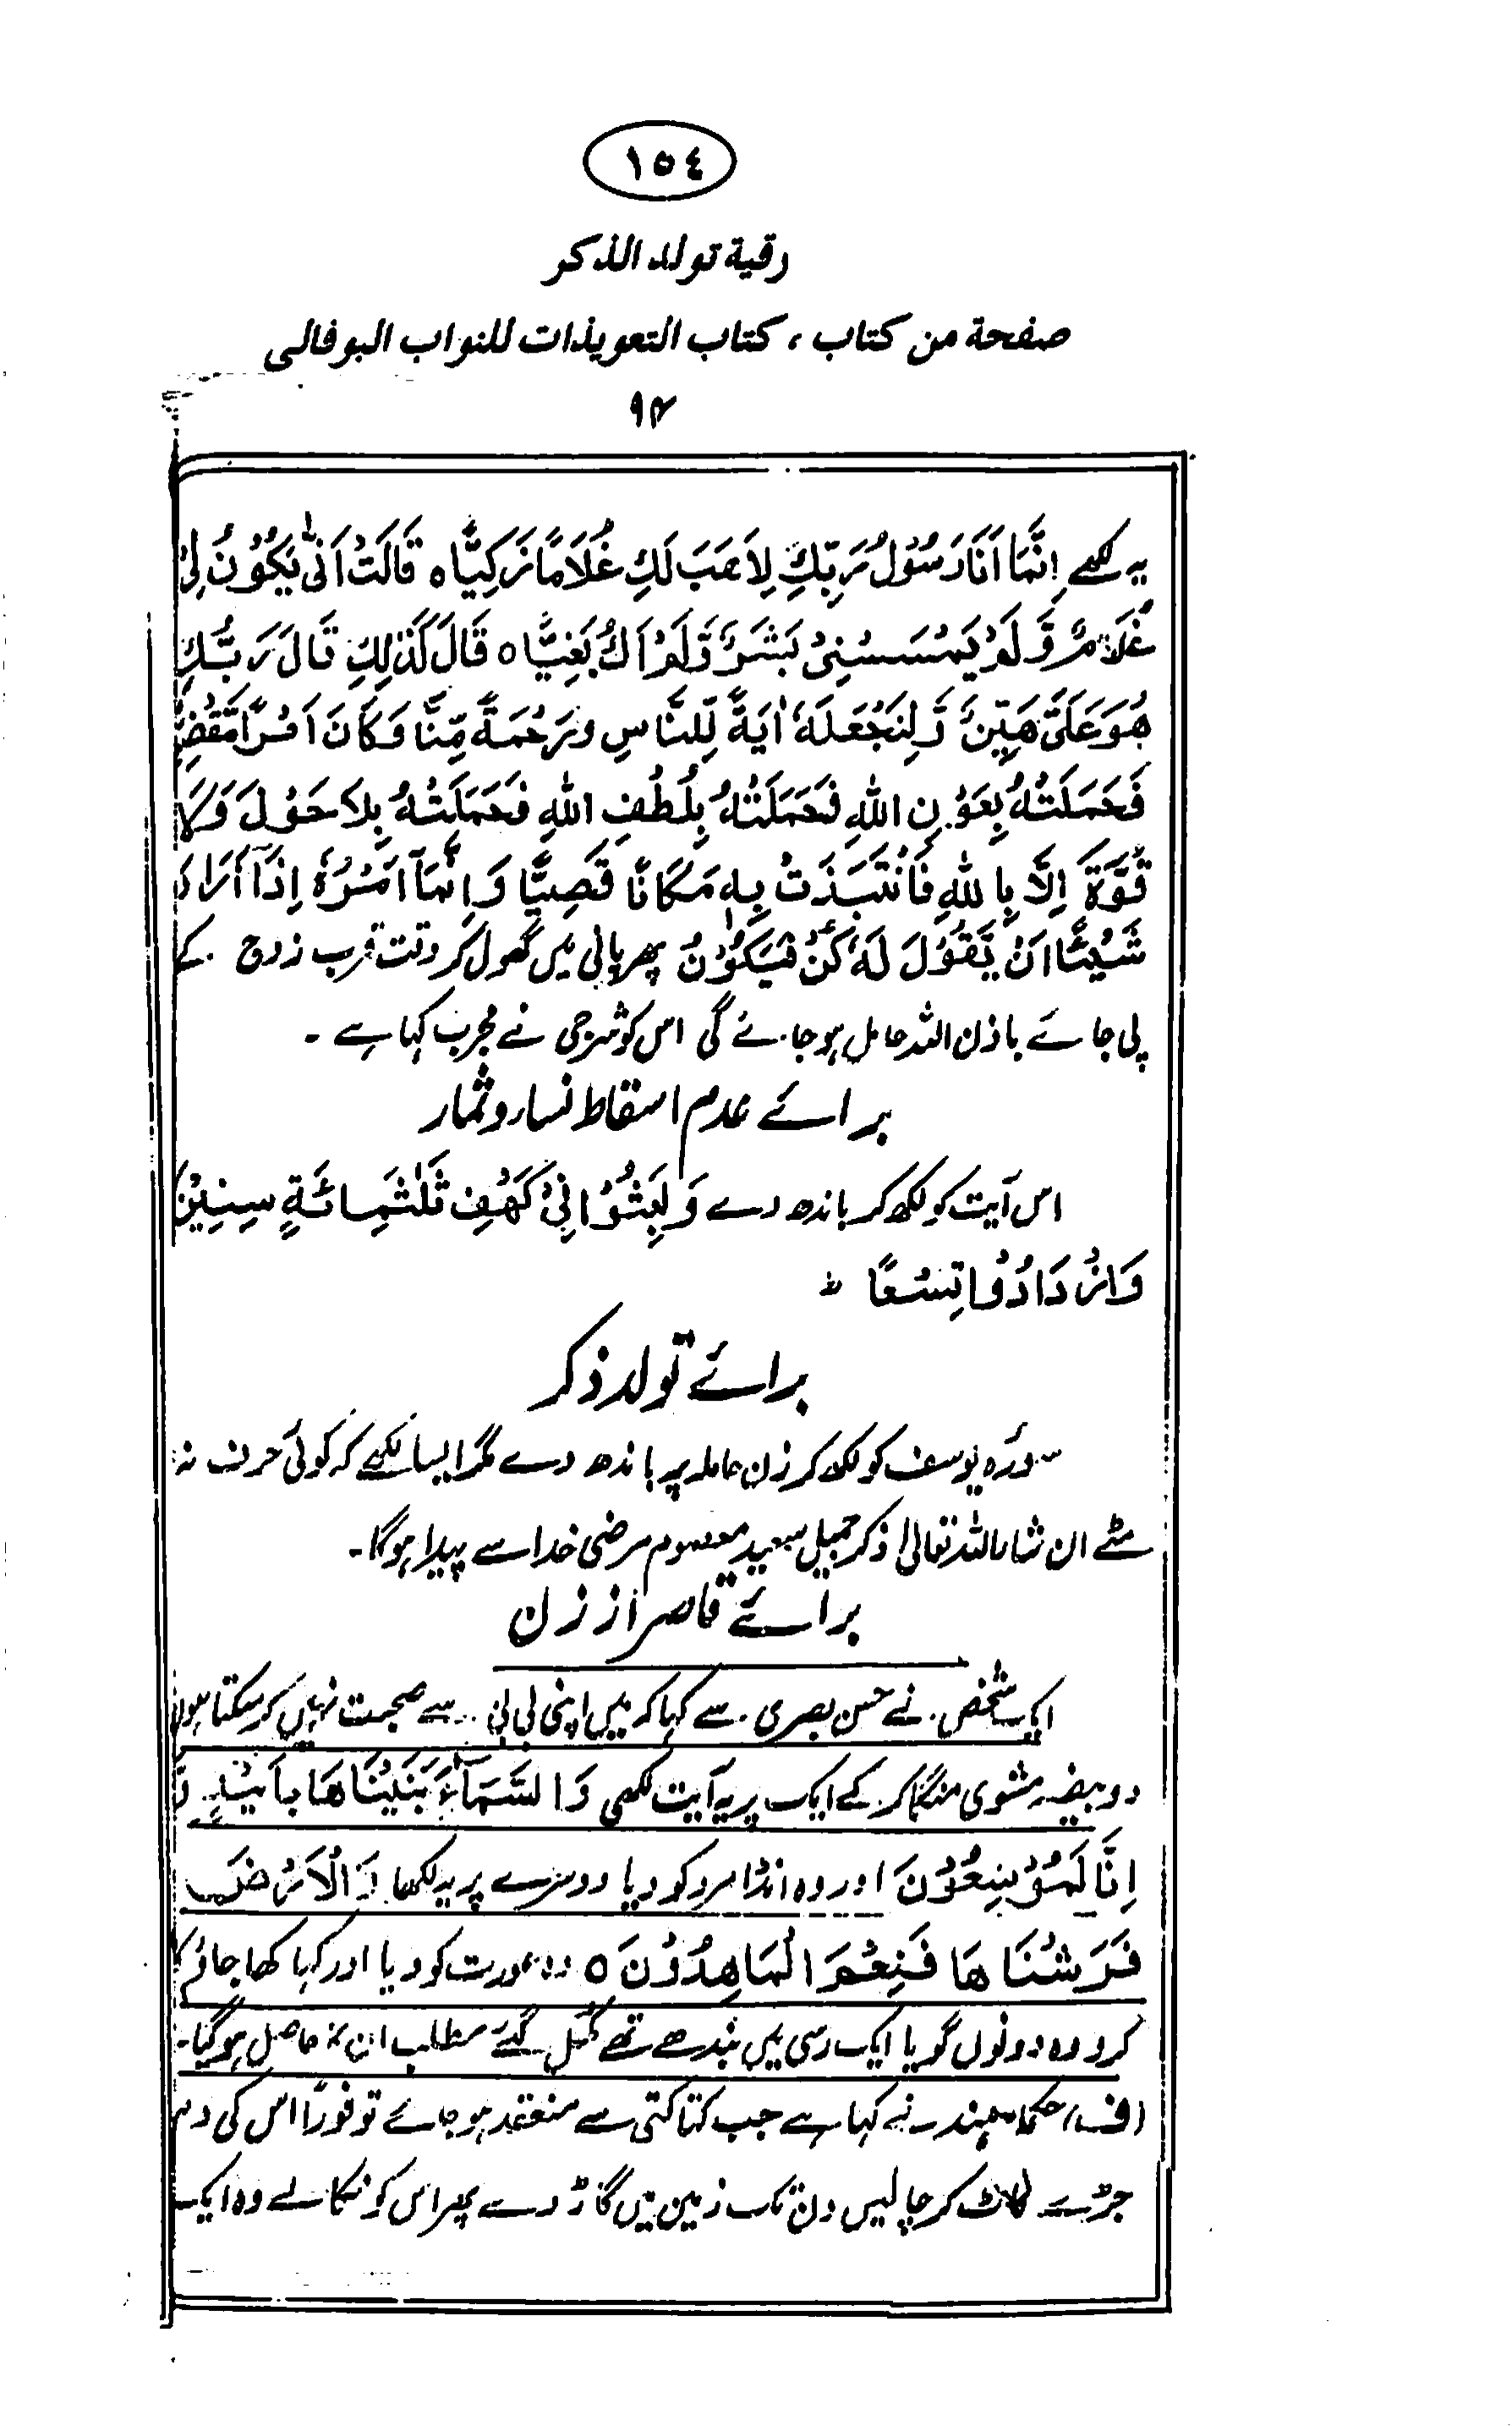 ١٥٤
رقية تولد الذكر
صفحة من كتاب ، كتاب التعويذات للنواب البوفالى
۹۴
یہ لکھے اِنَّمَا اَنَا رَسُوْلُ رَبِّكِ لِاَهَبَ لَكِ غُلَامًا زَكِيًّا ہ قَالَتْ اَنّٰى يَكُوْنُ لِىْ
غُلَامٌ وَّلَمْ يَمْسَسْنِىْ بَشَرٌ وَّلَمْ اَكُ بَغِيًّا ہ قَالَ كَذٰلِكِ قَالَ رَبُّكِ
هُوَ عَلَىَّ هَيِّنٌ وَلِنَجْعَلَهٗ اٰيَةً لِّلنَّاسِ وَرَحْمَةً مِّنَّا وَكَانَ اَمْرًا مَّقْضِيًّا
فَحَمَلَتْهُ بِعَوْنِ اللهِ فَحَمَلَتْهُ بِلُطْفِ اللهِ فَحَمَلَتْهُ بِلَا حَوْلَ وَلَا
قُوَّةَ اِلَّا بِاللهِ فَانْتَبَذَتْ بِهٖ مَكَانًا قَصِيًّا وَاِنَّمَآ اَمْرُهٗ اِذَآ اَرَادَ
شَيْئًا اَنْ يَّقُوْلَ لَهٗ كُنْ فَيَكُوْنُ پھر پانی میں گھول کر وقت قرب زوج کے
پی جائے باذن اللہ حامل ہو جائے گی اس کو شرجی نے مجرب کہا ہے ۔
برائے عدم اسقاط نساء و ثمار
اس آیت کو لکھ کر باندھ دے وَلَبِثُوْا فِىْ كَهْفِ ثَلٰثَمِائَةٍ سِنِيْنَ
وَازْدَادُوْا تِسْعًا ط
برائے تولد ذکر
سورۂ یوسف کو لکھ کر زن حاملہ پر باندھ دے مگر ایسا لکھے کہ کوئی حرف نہ
مٹے ان شاء اللہ تعالیٰ ذکر جمیل سعید معصوم مرضی خدا سے پیدا ہو گا۔
برائے قاصر از زن
ایک شخص نے حسن بصری سے کہا کہ میں اپنی بی بی سے صحبت نہیں کر سکتا ہوں
دو بیضہ مشوی منگا کر کے ایک پر یہ آیت لکھی وَالسَّمَآءَ بَنَيْنَاهَا بِاَيْيدٍ وَّ
اِنَّا لَمُوْسِعُوْنَ اور وہ انڈا مرد کو دیا دوسرے پر یہ لکھا وَالْاَرْضَ
فَرَشْنَاهَا فَنِعْمَ الْمَاهِدُوْنَ ہ وہ عورت کو دیا اور کہا کھا جائے
کرو وہ دونوں گویا ایک رسی میں بندھے تھے کھل گئے مطلب ان کا حاصل ہو گیا۔
(ف) حکماء ہند نے کہا ہے جب کتا کتی سے منعقد ہو جائے تو فوراً اس کی دم
جڑ سے کاٹ کر چالیس دن تک زمین میں گاڑ دے پھر اس کو نکالے وہ ایک